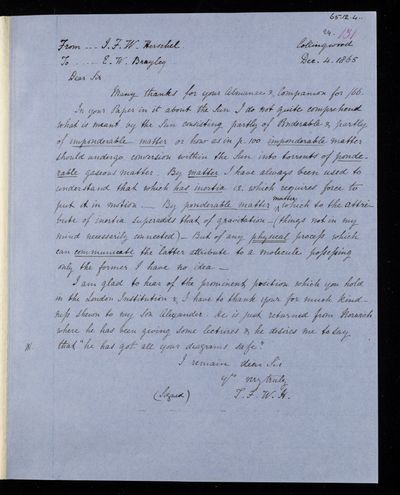 65-12-4
24. 131
From --- J. F. W. Herschel
Collingwood
To ---- E. W. Brayley
Dec. 4. 1865
Dear Sir
Many thanks for your Almanac & Companion for /66.
In your Paper in it about the Sun I do not quite comprehend
what is meant by the Sun consisting partly of Ponderable & partly
of imponderable matter or how as in p. 100 imponderable matter
should undergo conversion within the Sun into torrents of ponde-
rable gaseous matter. By matter I have always been used to
understand that which has inertia i.e. which requires force to
put it in motion — By ponderable matter matter which to the attri-
bute of inertia superadds that of gravitation — (things not in my
mind necessarily connected) — But of any physical process which
can communicate the latter attribute to a molecule possessing
only the former I have no idea —
I am glad to hear of the prominent position which you hold
in the London Institution & I have to thank you for much kind-
ness shewn to my Son Alexander. He is just returned from Norwich
where he has been giving some lectures & he desires me to say
that "he has got all your diagrams safe."
I remain dear Sir
Yrs very truly
(Signed) J. F. W. H.